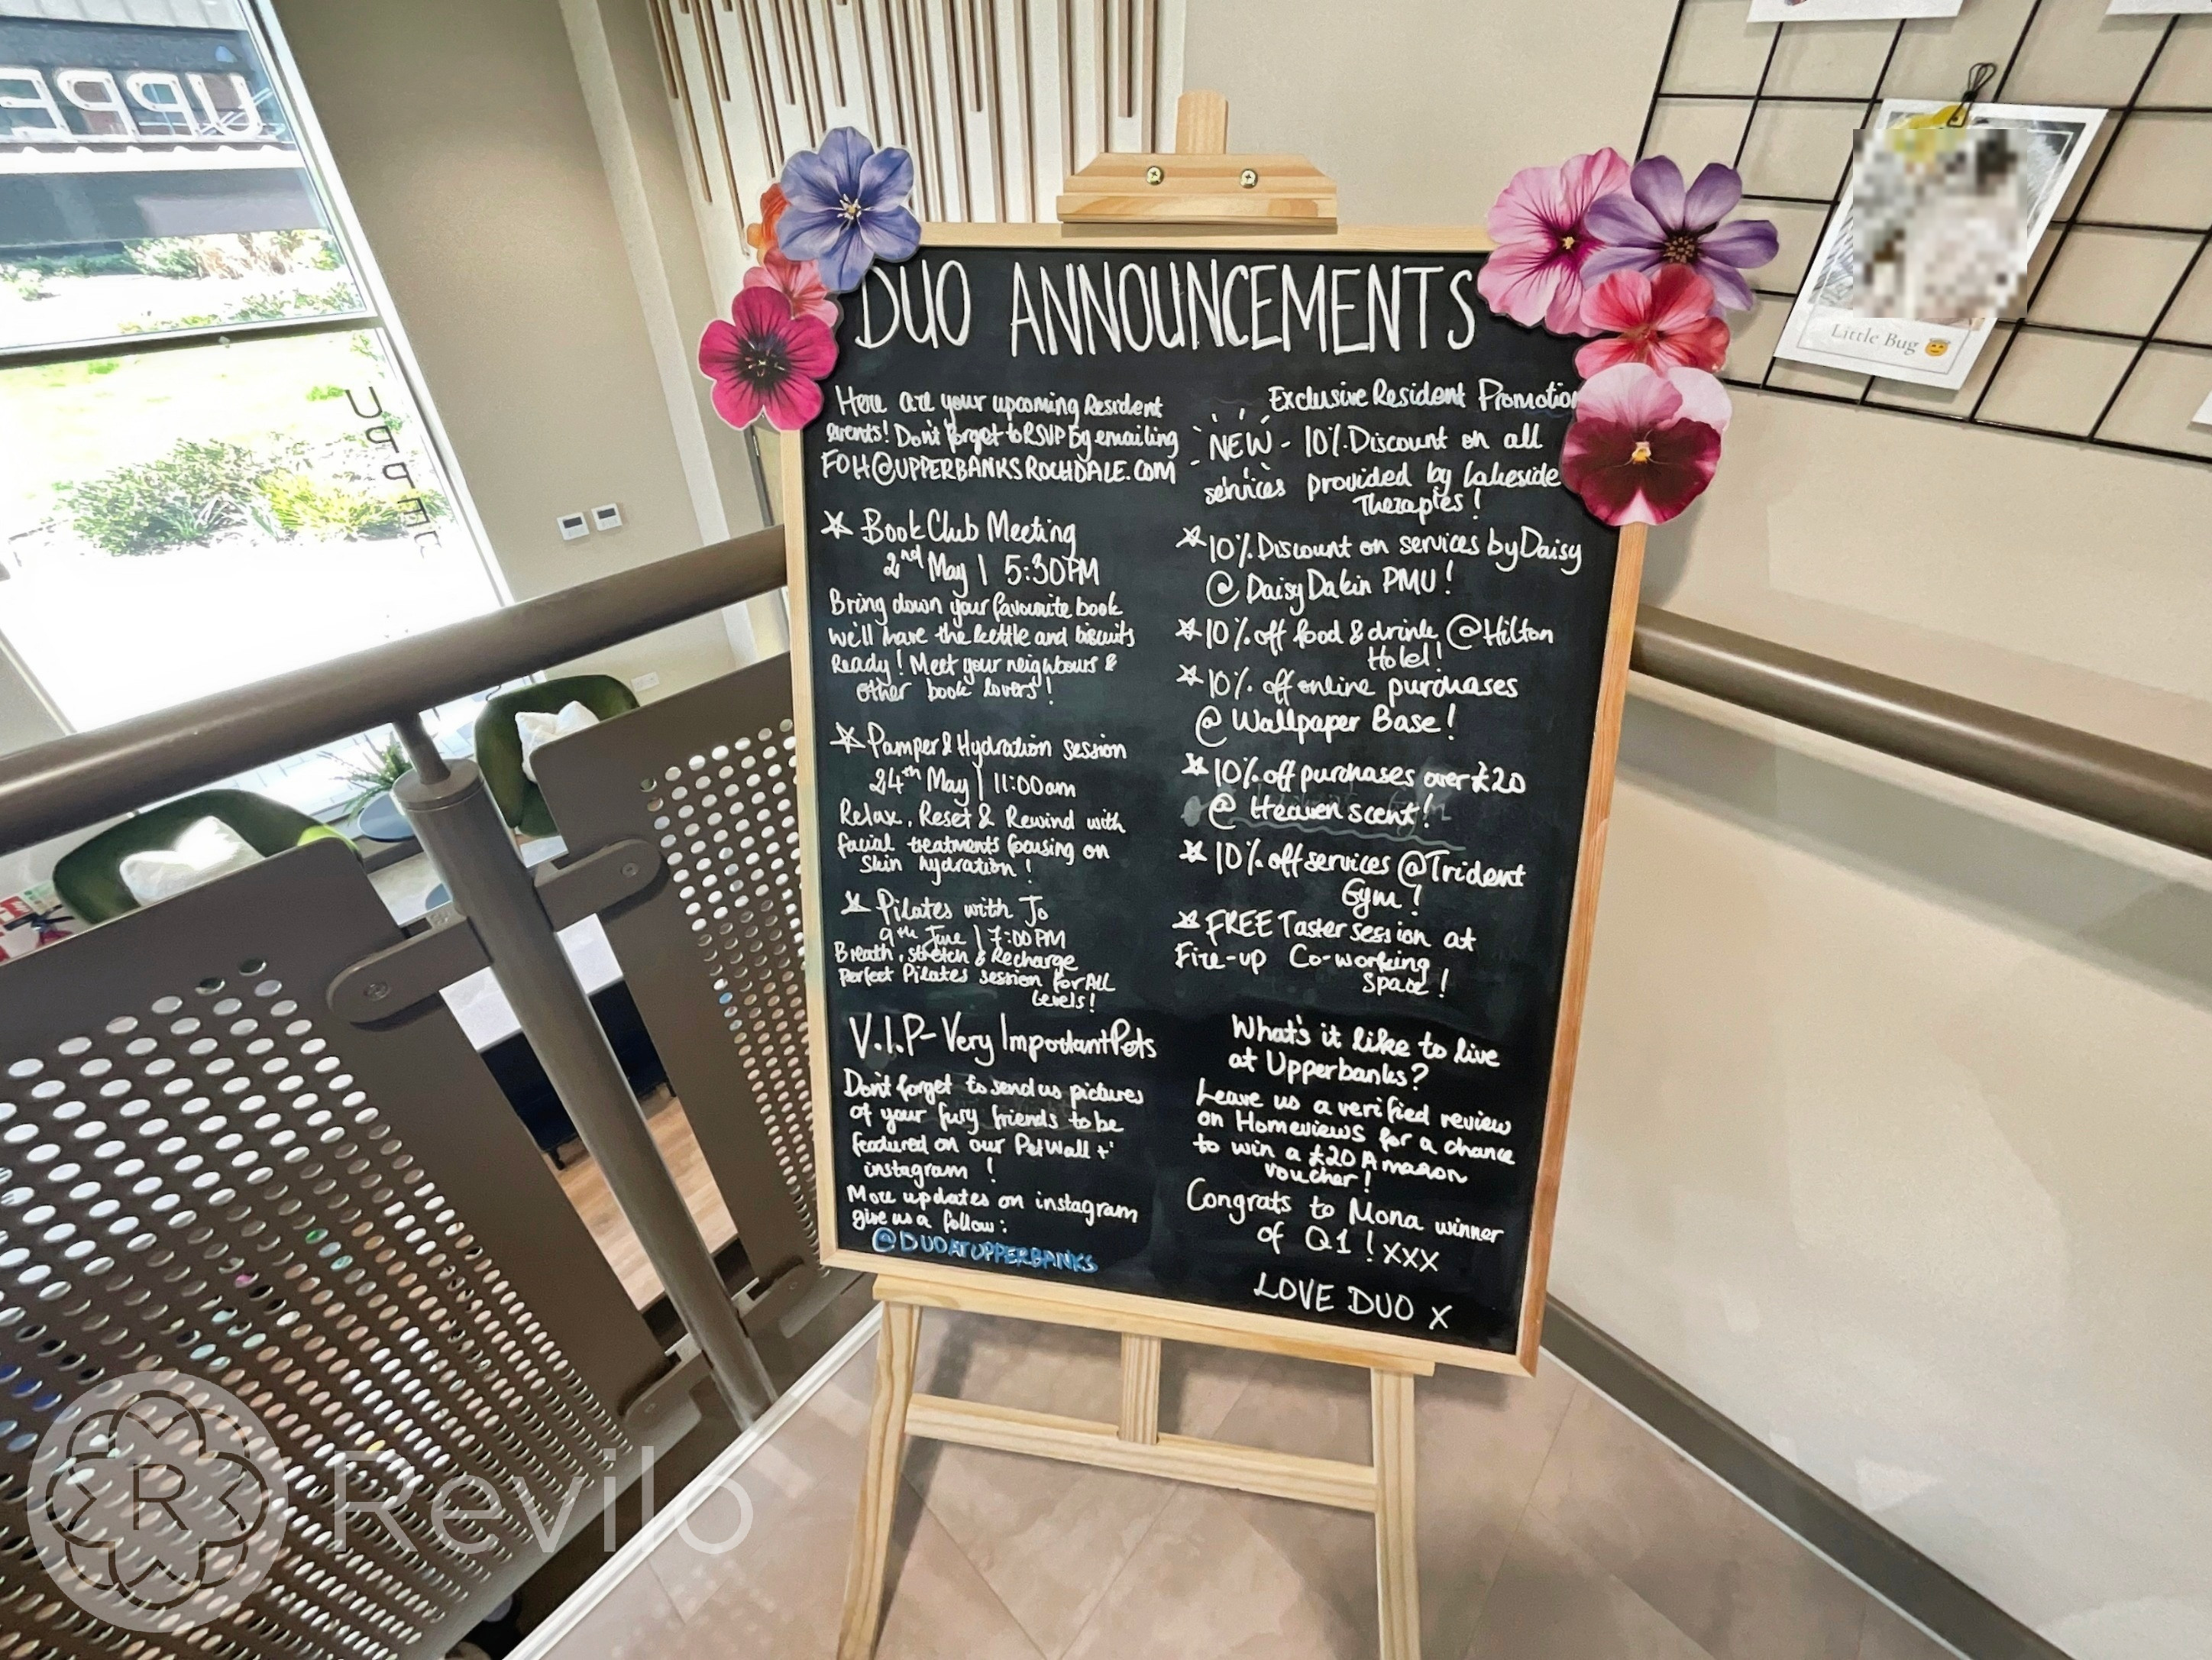 UPPE
Upper
Little Bug 😇
DUO ANNOUNCEMENTS
Here are your upcoming Resident
events! Don't forget to RSVP by emailing
FOH@UPPERBANKSROCHDALE.COM
☆ Book Club Meeting
2nd May | 5:30PM
Bring down your favourite book
we'll have the kettle and biscuits
Ready! Meet your neighbours &
other book lovers!
☆ Pamper & Hydration session
24th May | 11:00am
Relax, Reset & Rewind with
facial treatments focusing on
Skin hydration!
☆ Pilates with Jo
9th June | 7:00PM
Breath, stretch & Recharge
Perfect Pilates session for ALL
Levels!
V.I.P - Very Important Pets
Don't forget to send us pictures
of your fury friends to be
featured on our Pet Wall +
instagram!
More updates on instagram
give us a follow:
@DUOATUPPERBANKS
Exclusive Resident Promotion
NEW - 10% Discount on all
services provided by Lakeside
Therapies!
☆ 10% Discount on services by Daisy
@ Daisy Dakin PMU!
☆ 10% off food & drink @ Hilton
Hotel!
☆ 10% off online purchases
@ Wallpaper Base!
☆ 10% off purchases over £20
@ Heaven scent!
☆ 10% off services @ Trident
Gym!
☆ FREE Taster session at
Fire-up Co-working
Space!
What's it like to live
at Upperbanks?
Leave us a verified review
on Homeviews for a chance
to win a £20 Amazon
voucher!
Congrats to Mona winner
of Q1! xxx
LOVE DUO X
R Revilo